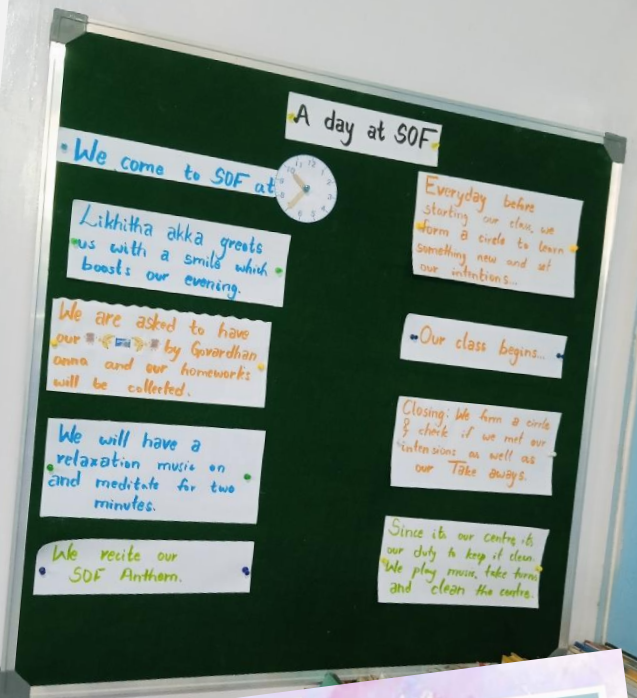 A day at SOF
We come to SOF at
Likhitha akka greets
us with a smile which
boosts our evening.
We are asked to have
our by Govardhan
anna and our homeworks
will be collected.
We will have a
relaxation music on
and meditate for two
minutes.
We recite our
SOF Anthem.
Everyday before
starting our class, we
form a circle to learn
something new and set
our intentions...
Our class begins...
Closing: We form a circle
& check if we met our
intensions as well as
our Take aways.
Since its our centre its
our duty to keep it clean.
We play music, take turns
and clean the centre.